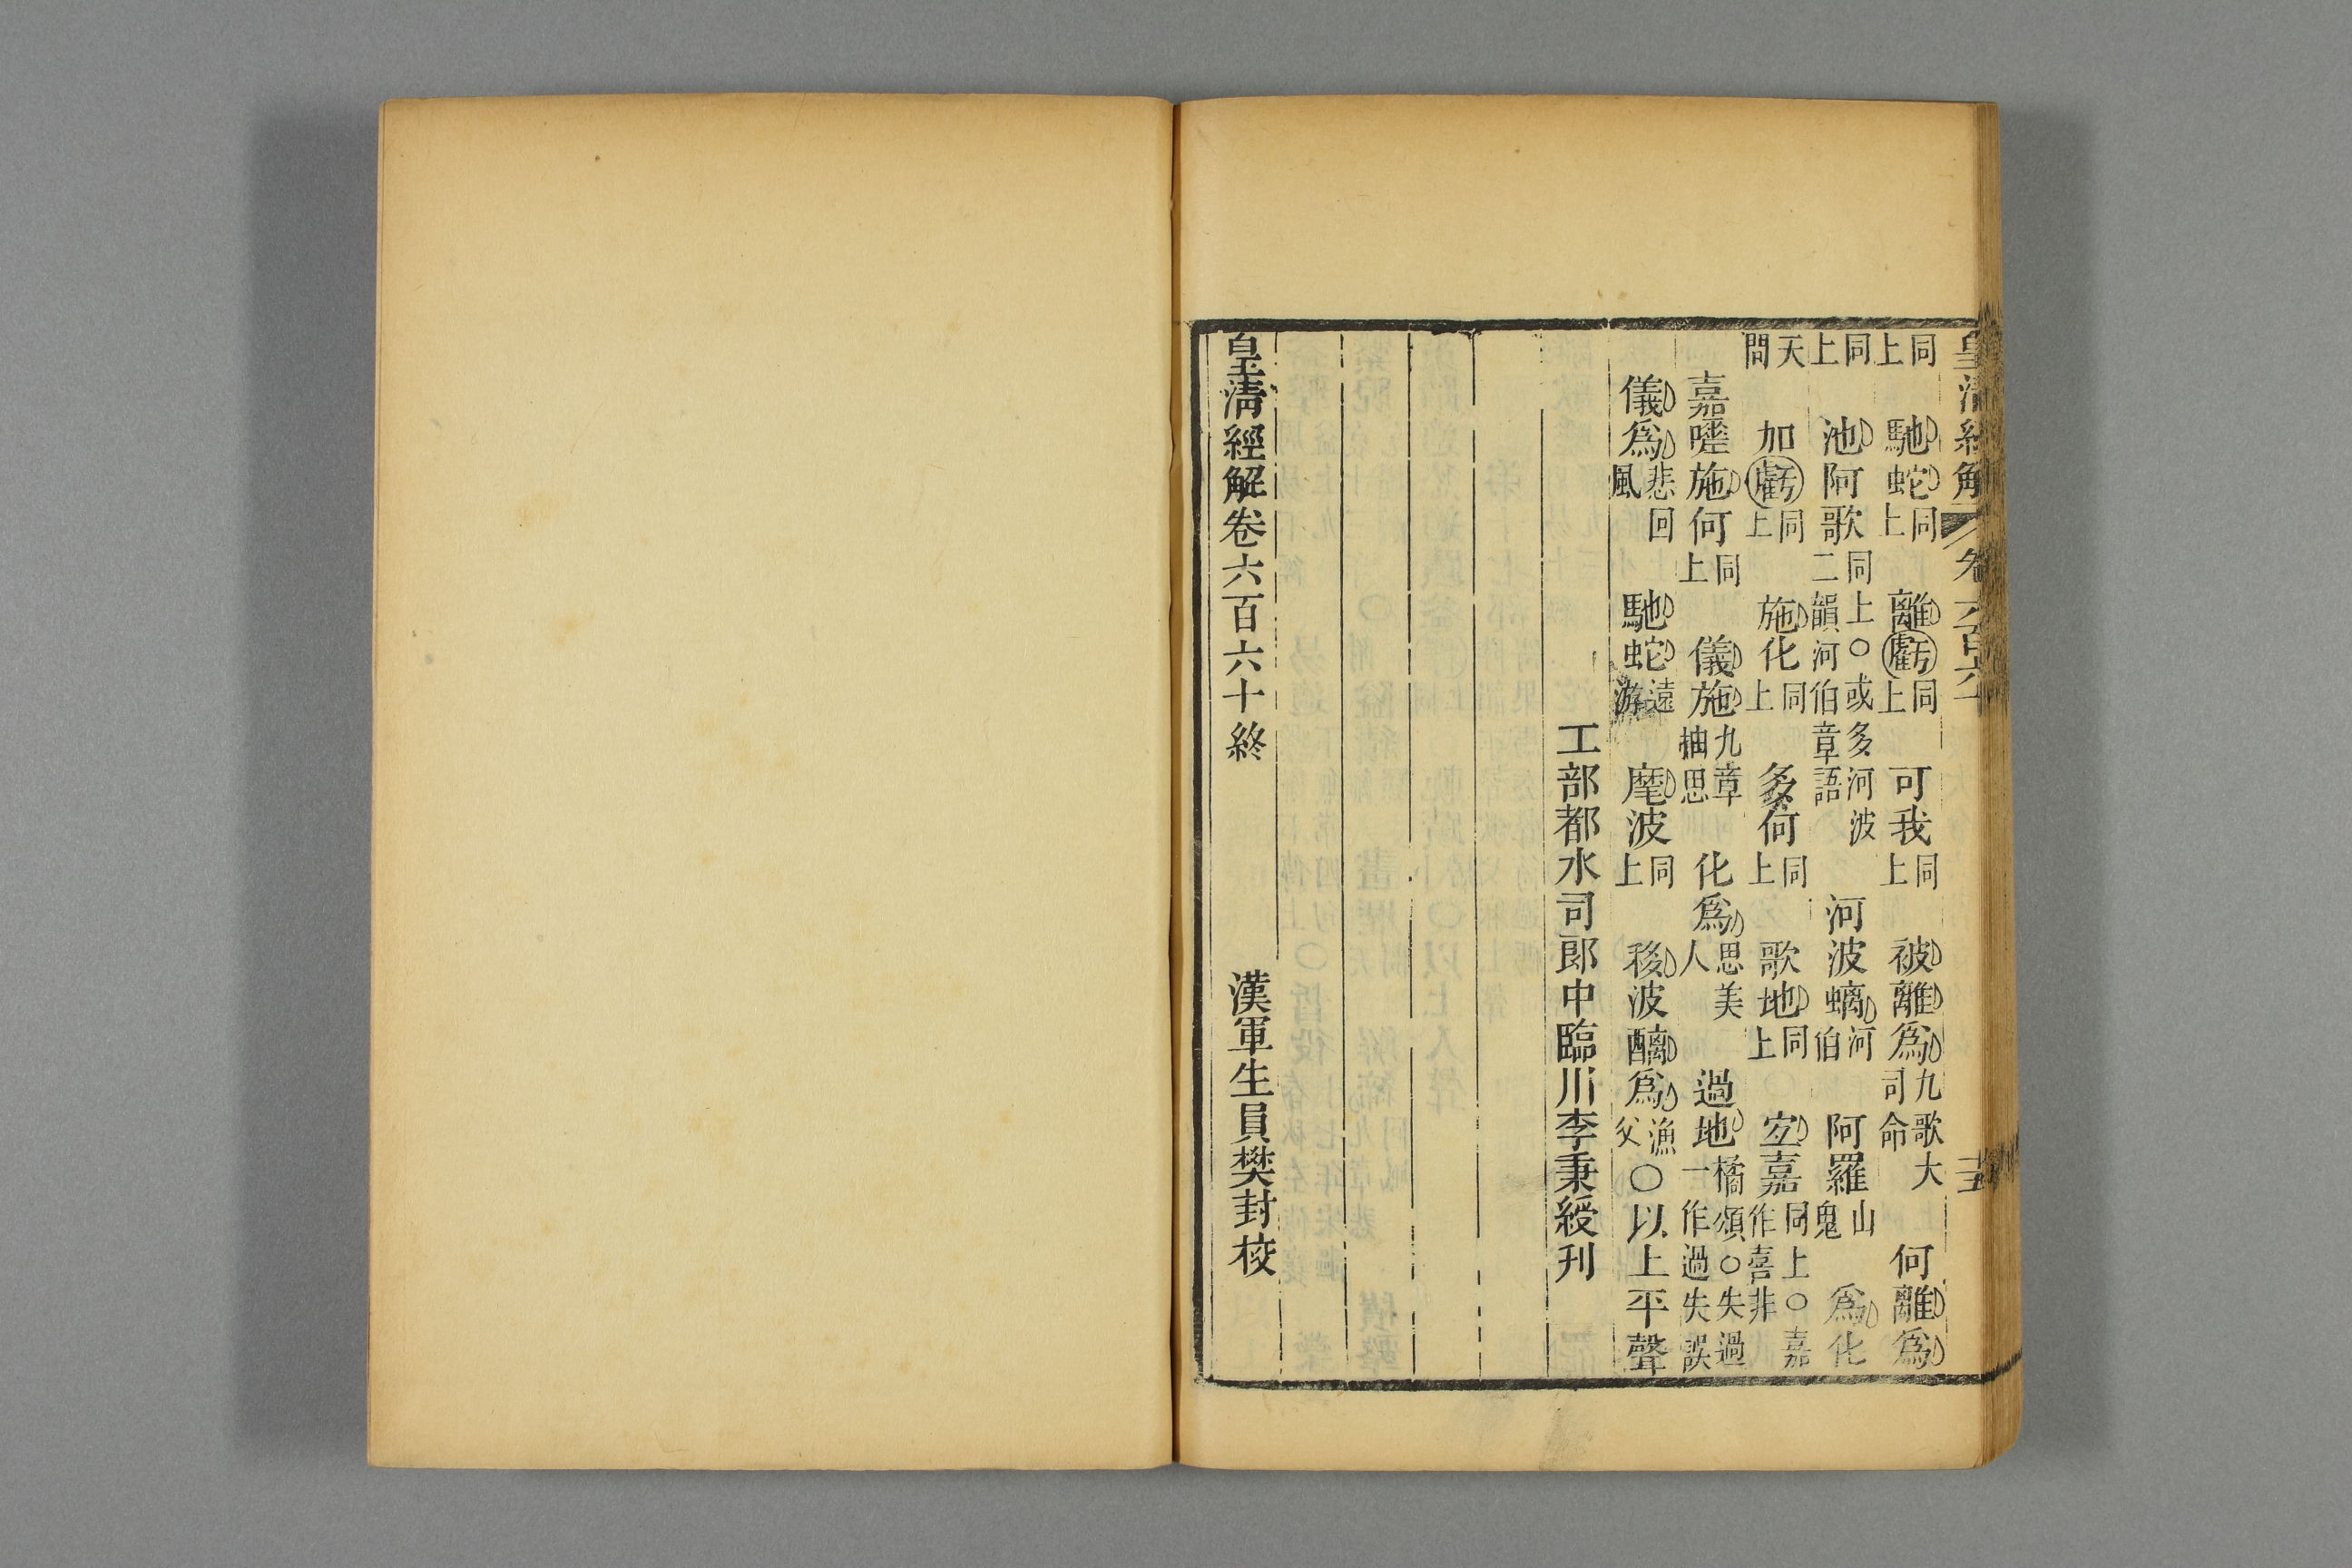 皇清經解 卷六百六十 十五
同上 馳蛇同上 離虧同上 可我同上 被離爲九歌大司命 何離爲
同上 池阿歌同上○或多河波二韻河伯章語 河波螭河伯 阿羅山鬼 爲化
天問 加虧同上 施化同上 多何同上 歌地同上 宐嘉同上○嘉作喜非
嘉嗟施何同上 儀施九章抽思 化爲思美人 過地橘頌○失過一作過失誤
儀爲悲回風 馳蛇遠游 麾波同上 移波醨爲漁父○以上平聲
工部都水司郎中臨川李秉綬刊
皇清經解卷六百六十終 漢軍生員樊封校